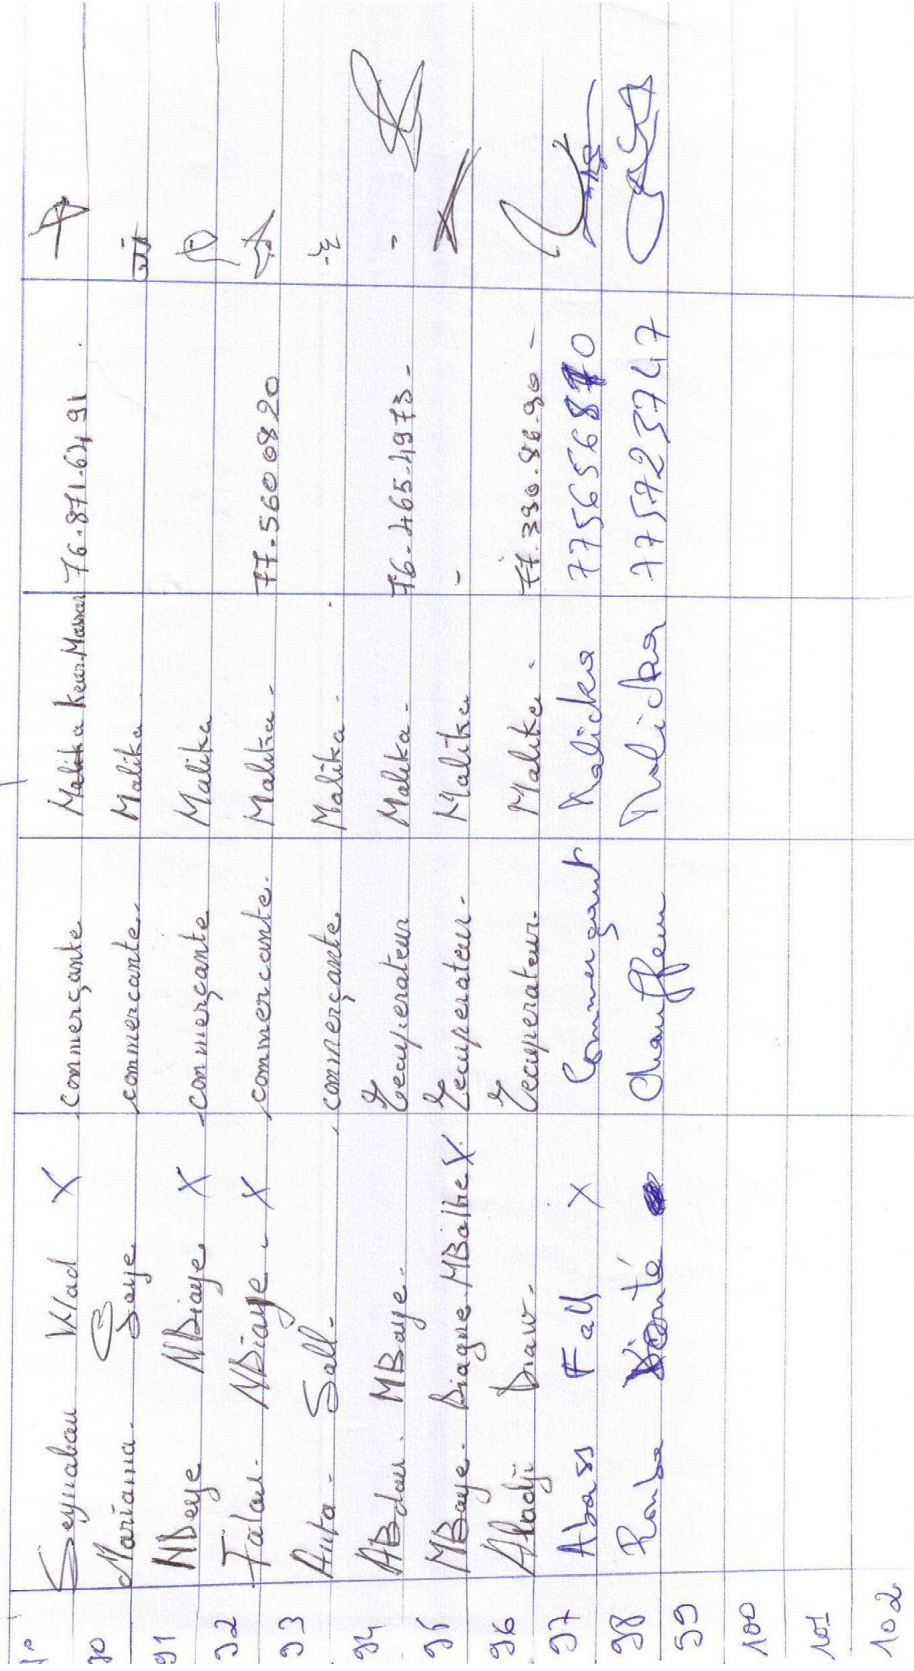 Seynabou X commerçante Malika Keur Massar 76-871-64 91
90 Mariama Seye commercante Malika
91 NDeye NDiaye X commerçante Malika
92 Fatou NDiaye X commercante Malika 77-560 08 20
93 Anta Sall commerçante Malika
94 ABdou MBaye recuperateur Malika 76-465-4973
95 MBaye Diagne MBallie X recuperateur Malika
96 Aladji recuperateur Malika 77.390.86.90
97 Abass Fall X Commerçant Malicka
98 Konté Chauffeur Malicka 775723747
99
100
101
102